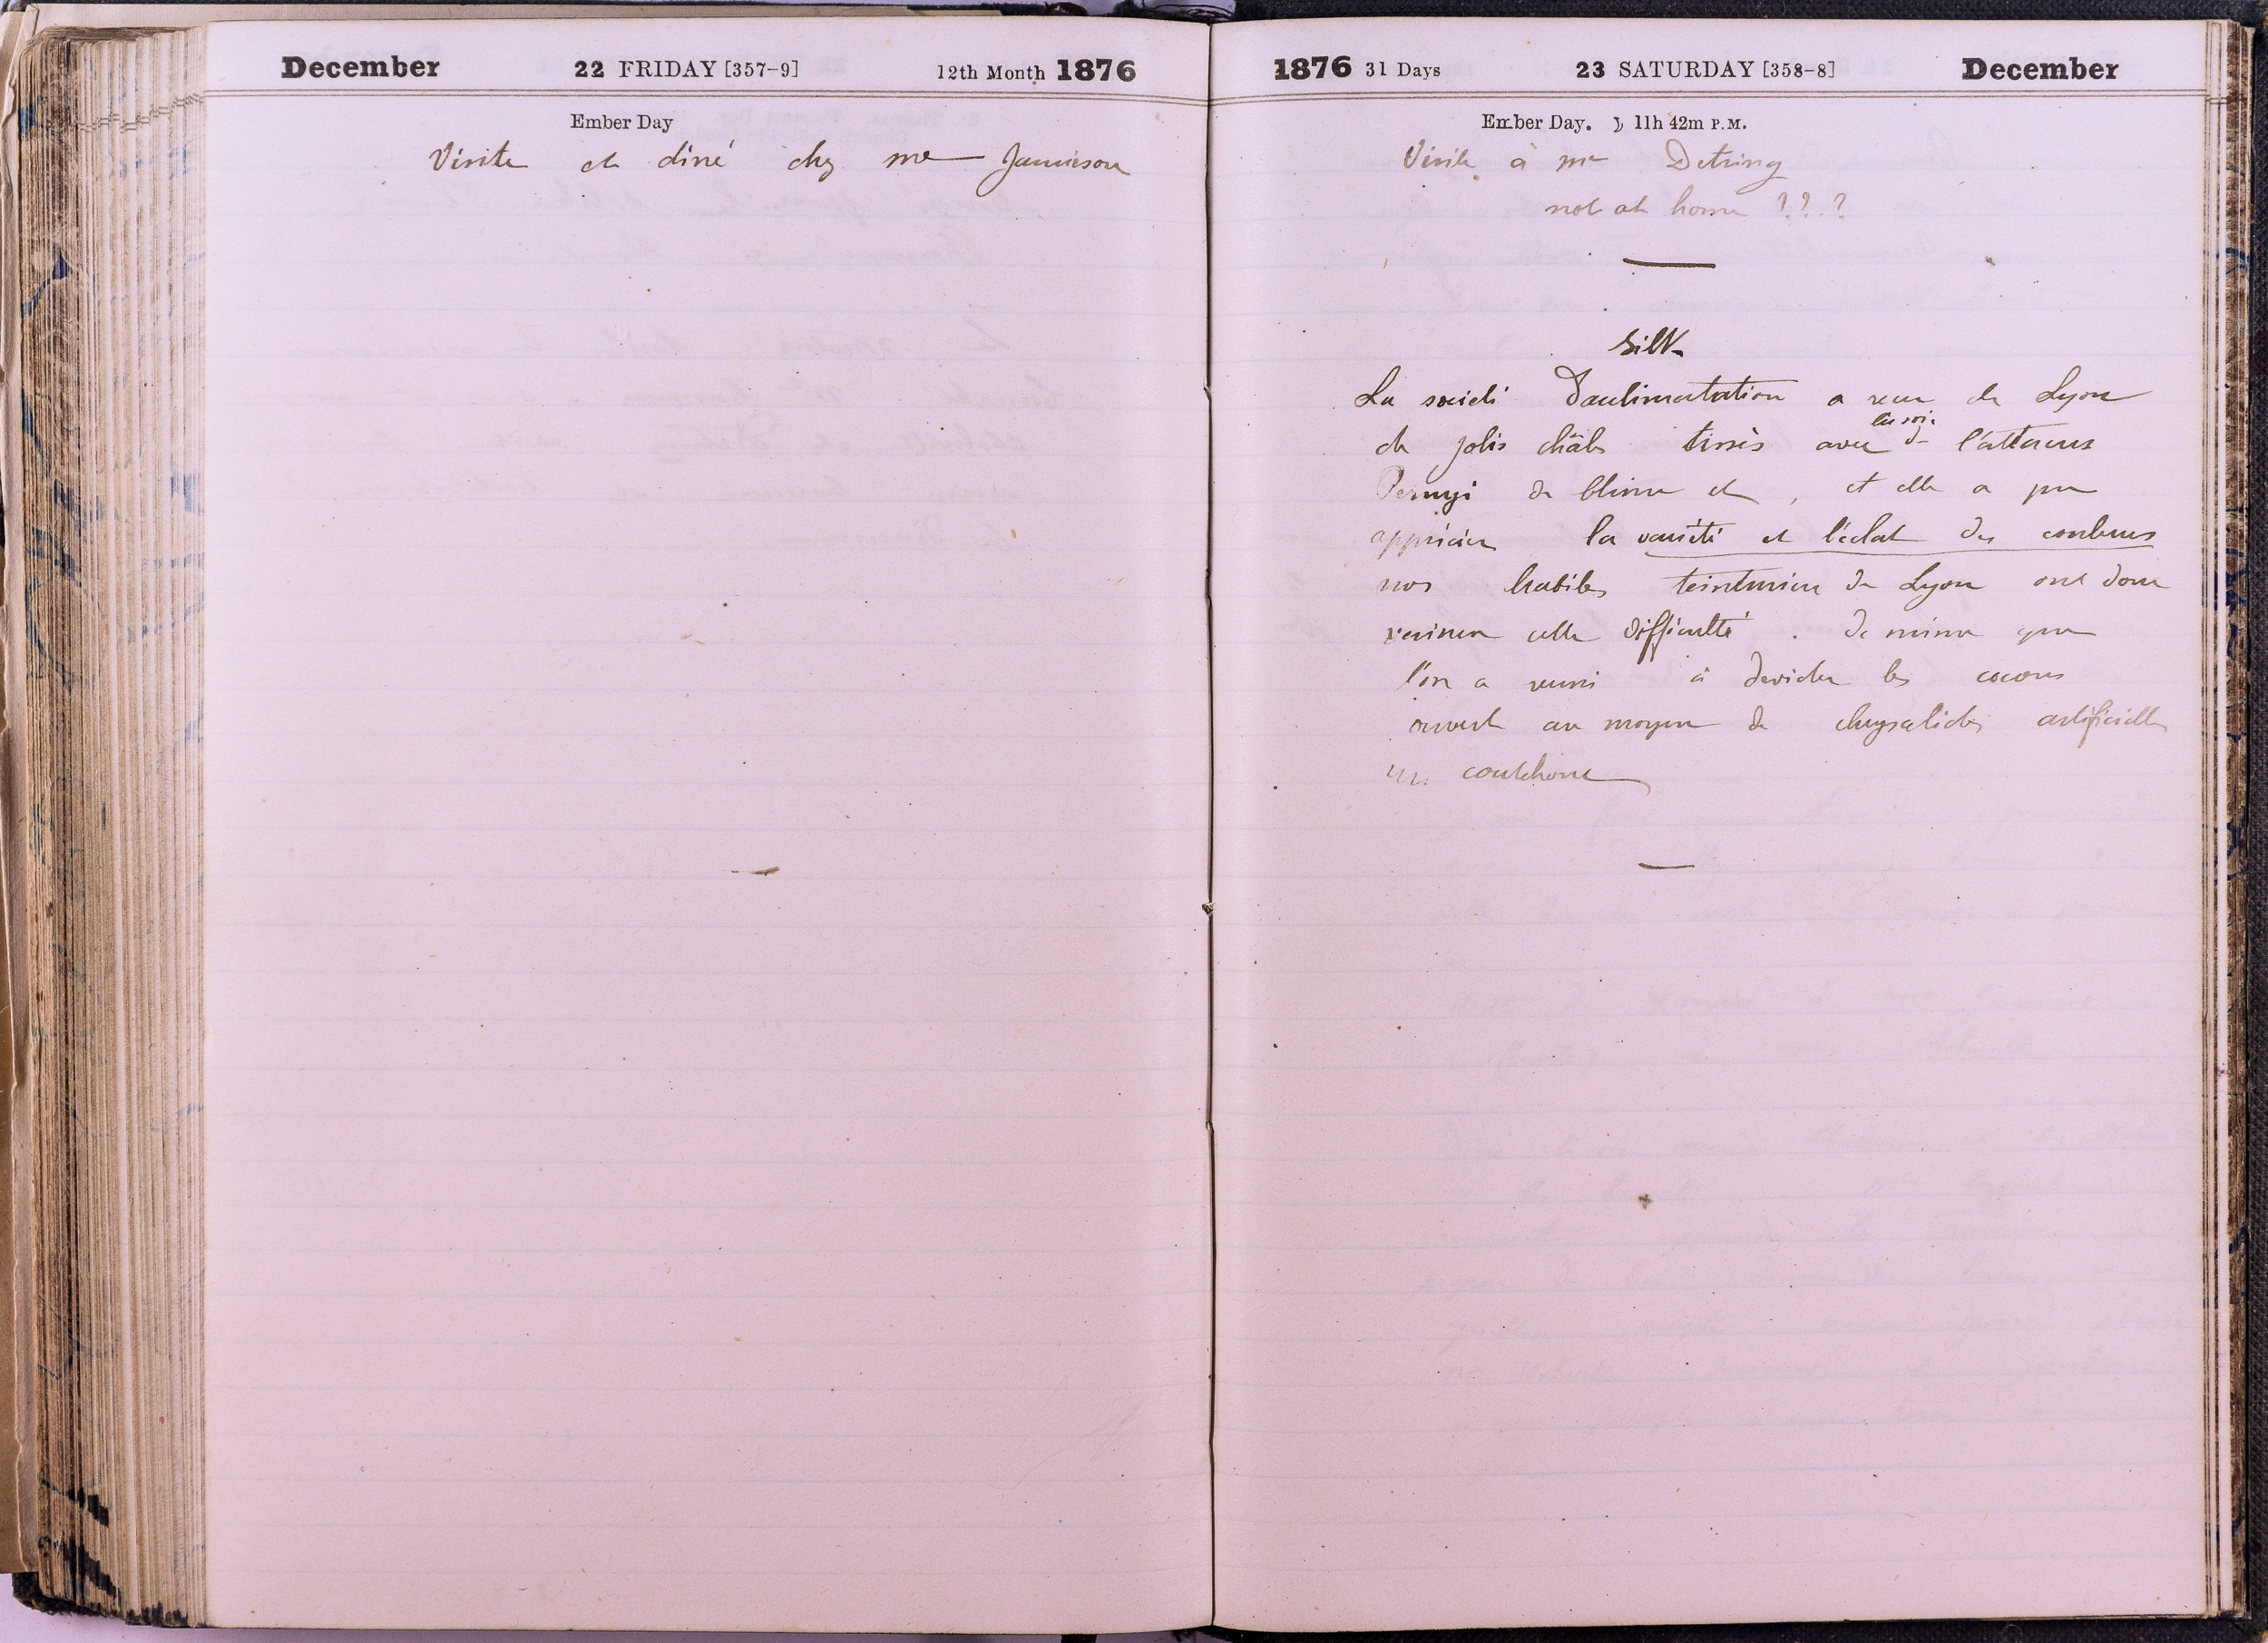 December 22 FRIDAY [357-9] 12th Month 1876
Ember Day
Visite et diné chez me Jamieson
1876 31 Days 23 SATURDAY [358-8] December
Ember Day. ☽ 11h 42m P.M.
Visite à me Detring
not at home ? ? . ?
Silk
La societé d'aclimatation a recu de Lyon
de jolis châles tissés avec la soie de l'attacus
Pernyi de Chine et , et elle a pu
apprécier la varièté et l'éclat des couleurs
nos habiles teinturiers de Lyon ont donc
vaincu cette difficulté . de même que
l'on a reussi à devider les cocons
ouvert au moyen de chrysalides artificielles
en coutchouc